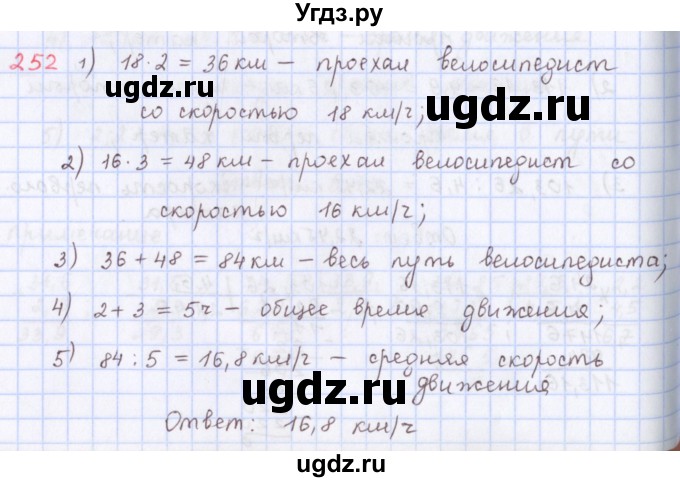 Угдз.ру
252 1) 18·2 = 36 км – проехал велосипедист
ugdz.ru ugdz.ru
со скоростью 18 км/ч;
2) 16·3 = 48 км – проехал велосипедист со
ugdz.ru ugdz.ru
скоростью 16 км/ч;
3) 36 + 48 = 84 км – весь путь велосипедиста;
ugdz.ru
4) 2 + 3 = 5 ч – общее время движения;
5) 84 : 5 = 16,8 км/ч – средняя скорость
ugdz.ru движения
Ответ: 16,8 км/ч
ugdz.ru
ugdz.ru